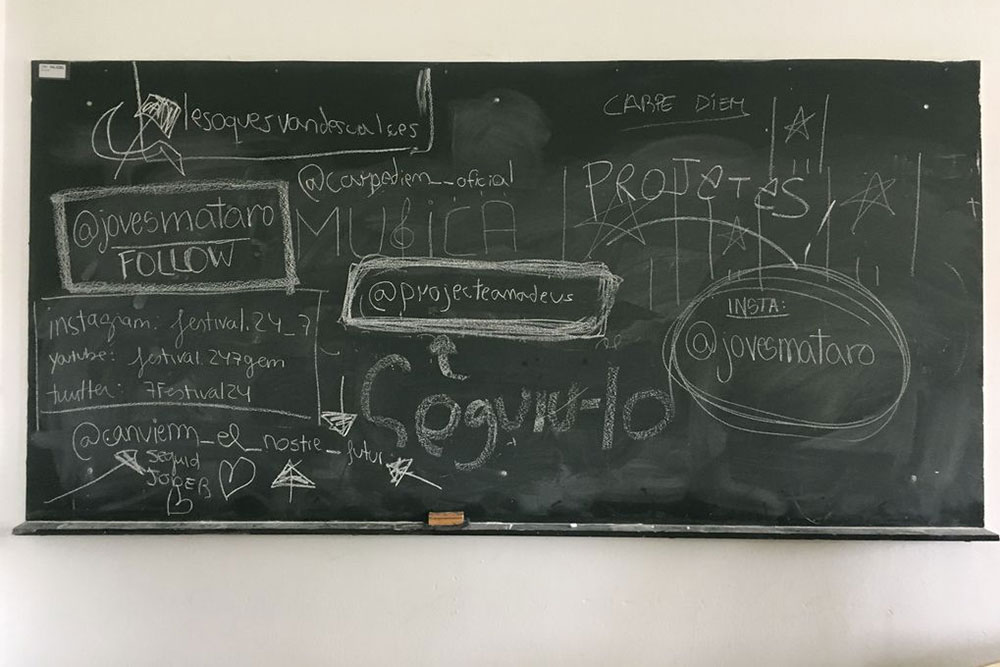 lesoquesvandescalces
CARPE DIEM
@carpediem_oficial
PROJECTES
@jovesmataro
FOLLOW
MUSICA
@projecteamadeus
INSTA:
@jovesmataro
instagram: festival.24_7
youtube: festival.247gem
twitter: 7Festival24
Seguiu-lo
@canviem_el_nostre_futur
SEGUID
JODER